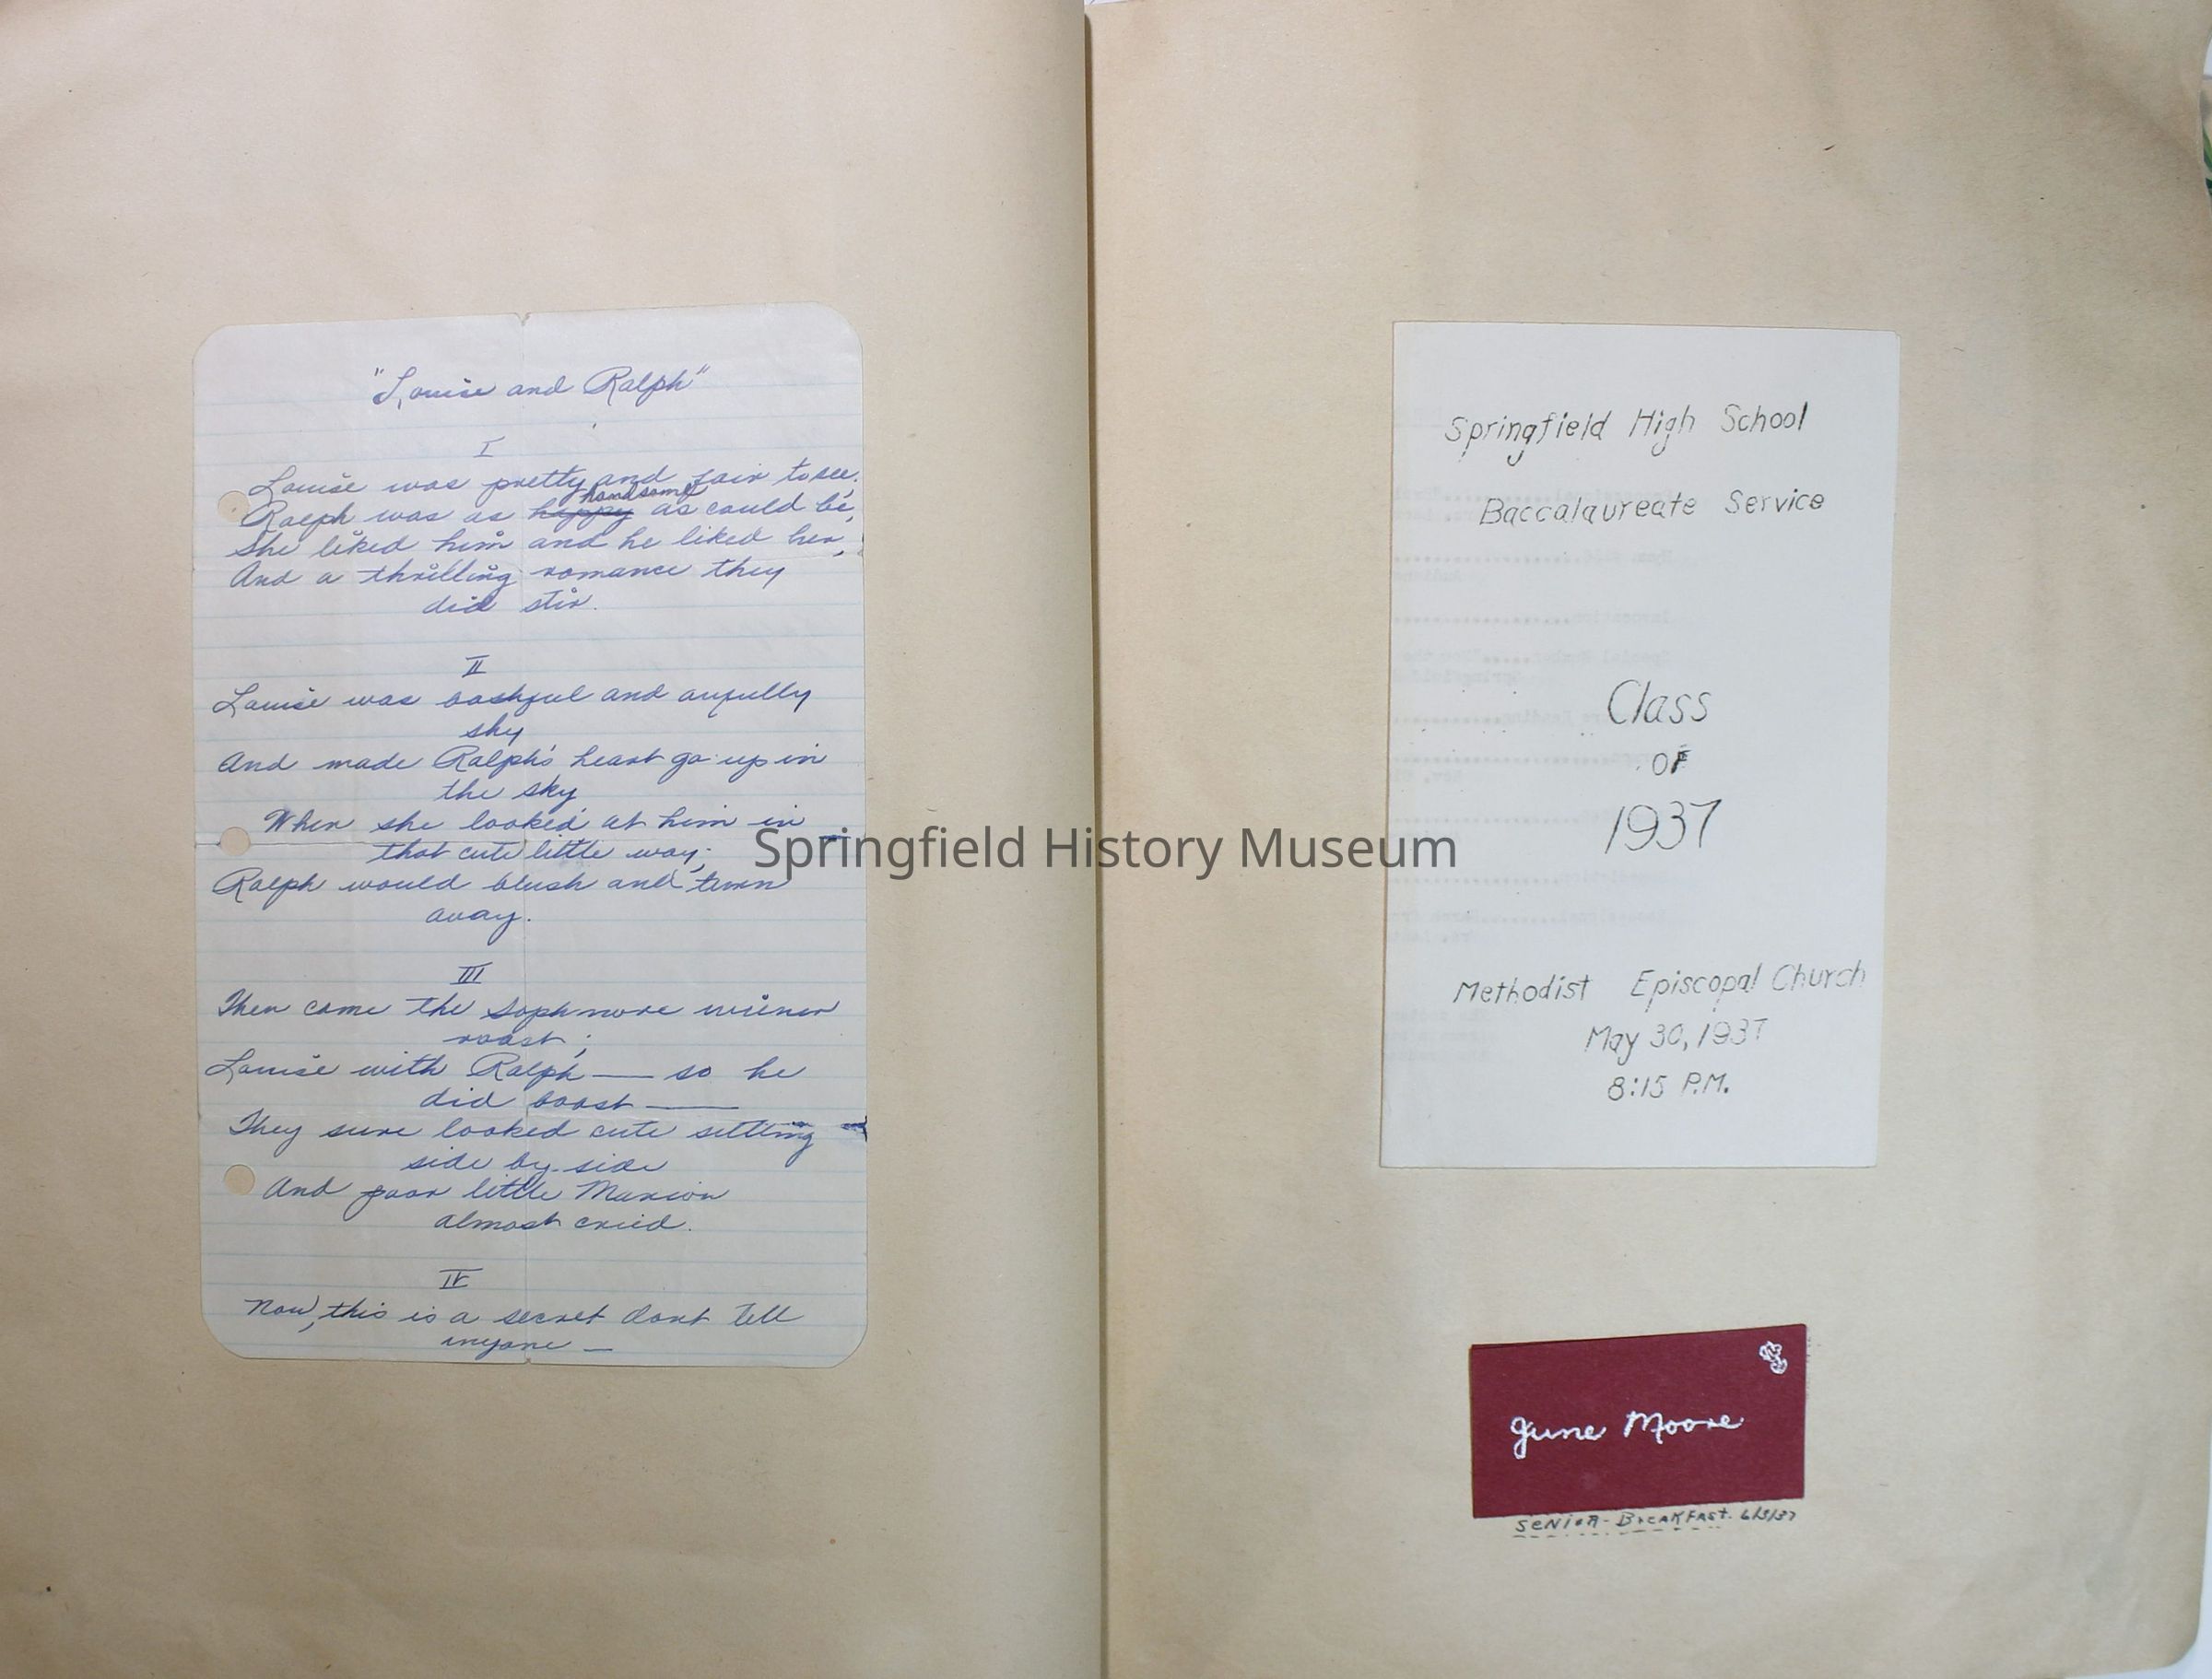 "Louise and Ralph"
I
Louise was pretty and fair to see,
handsome
Ralph was as happy as could be,
She liked him and he liked her,
And a thrilling romance they
did stir.
II
Louise was bashful and awfully
shy
And made Ralph's heart go up in
the sky
When she looked at him in
that cute little way;
Ralph would blush and turn
away.
III
Then came the sophmore wiener
roast;
Louise with Ralph — so he
did boast —
They sure looked cute setting
side by side
And poor little Marion
almost cried.
IV
Now, this is a secret dont tell
anyone —
Springfield High School
Baccalaureate Service
Class
OF
1937
Methodist Episcopal Church
May 30, 1937
8:15 P.M.
June Moore
SENIOR-BREAKFAST. 6/3/37
Springfield History Museum